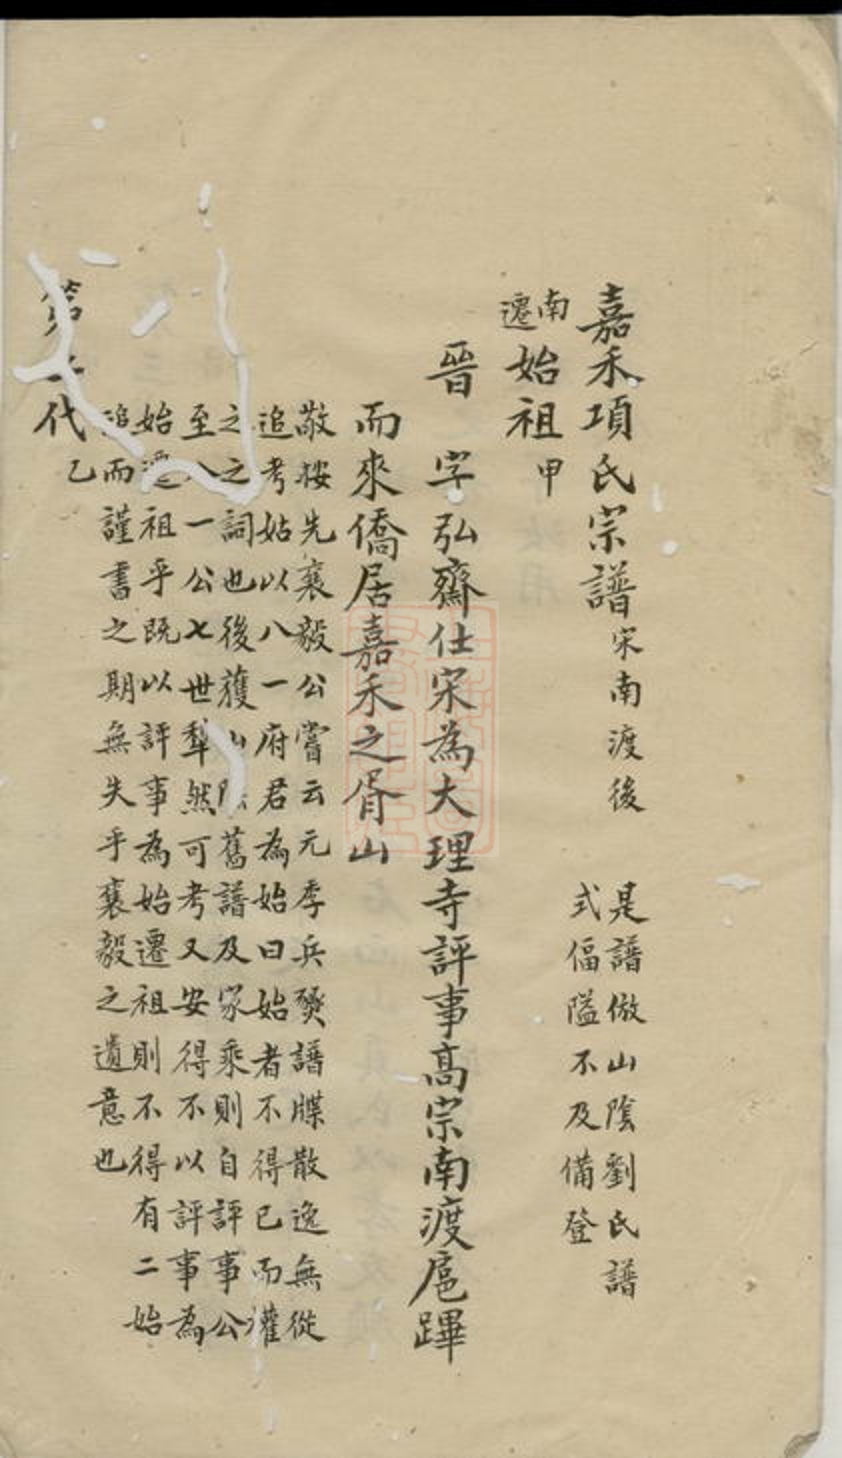 嘉禾項氏宗譜宋南渡後
是譜倣山陰劉氏譜
式偪隘不及備登
南遷始祖甲
晉 字弘齋仕宋為大理寺評事高宗南渡扈蹕
而來僑居嘉禾之胥山
敬按先襄毅公嘗云元季兵燹譜牒散逸無從
追考姑以八一府君為始曰始者不得已而權
之之詞也後獲山陰舊譜及家乘則自評事公
至八一公七世犂然可考又安得不以評事為
始遷祖乎既以評事為始遷祖則不得有二始
追而謹書之期無失乎襄毅之遺意也
第 代乙